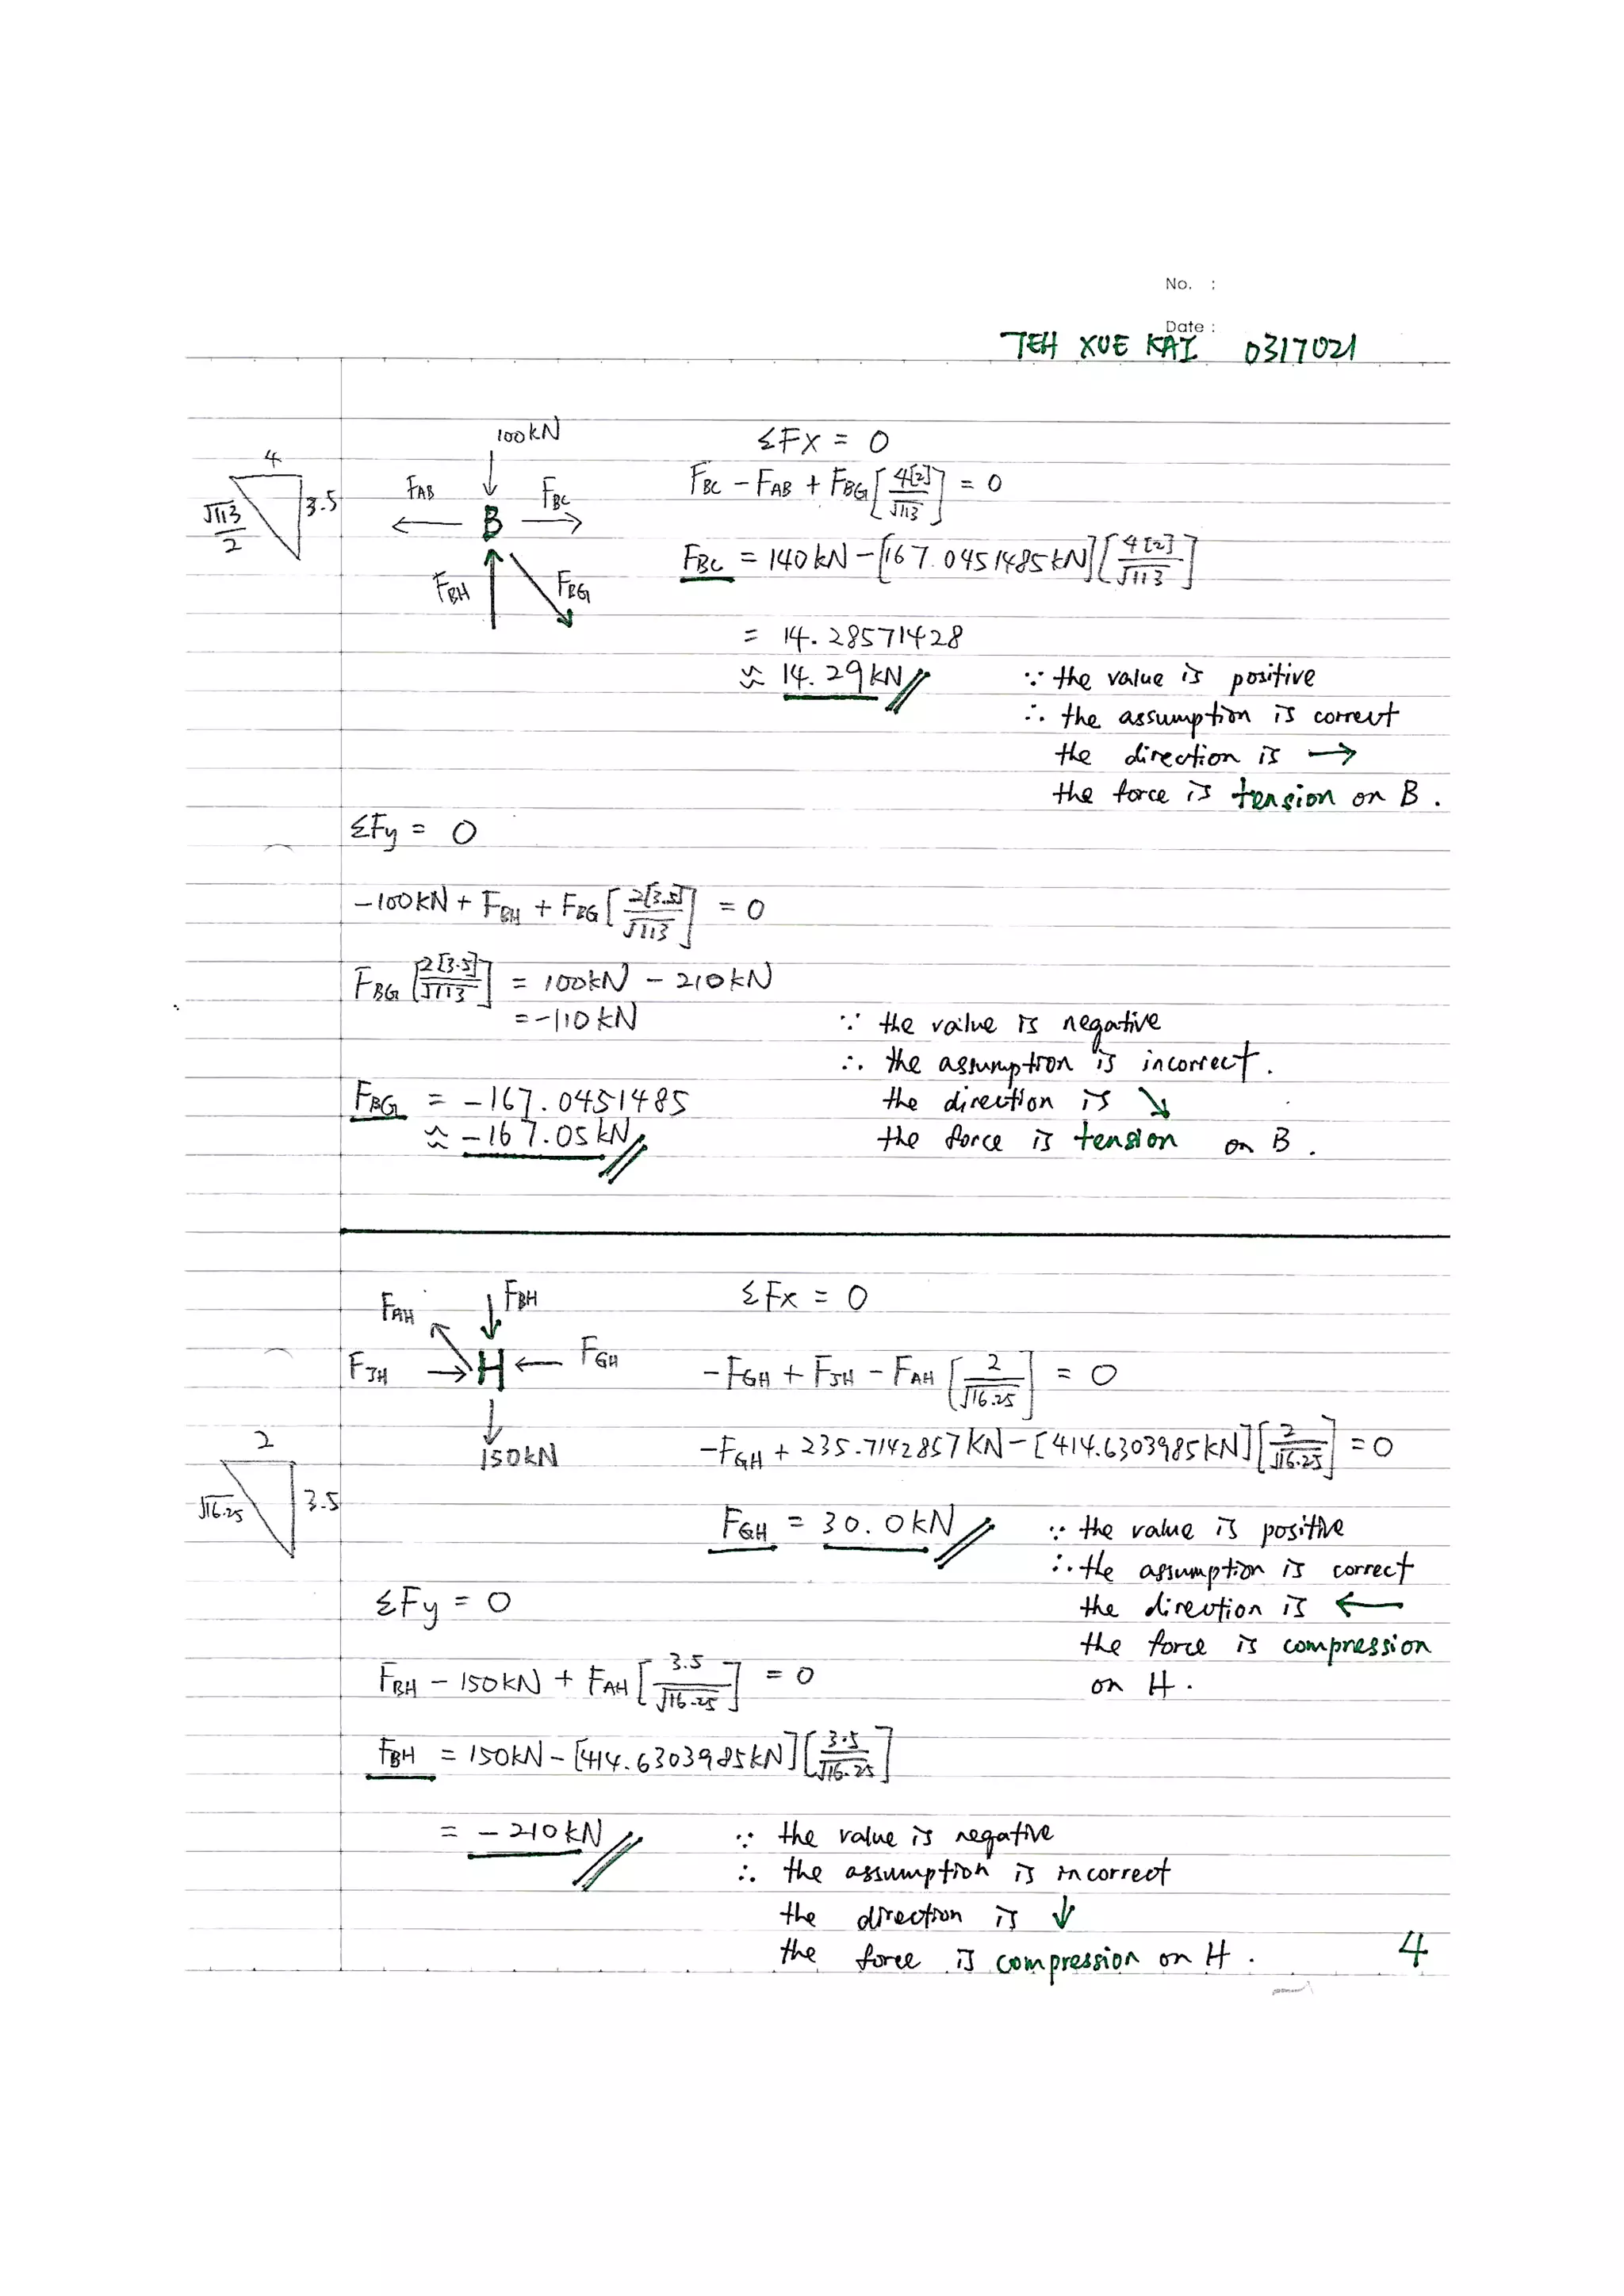 No. :
Date :
TEH XUE KAI 0317021
100kN
ΣFx = 0
4
3.5
√113/2
FAB
FBC
B
FBH
FBG
FBC - FAB + FBG[4[2]/√113] = 0
FBC = 140kN - [167.0451485kN][4[2]/√113]
= 14.28571428
≈ 14.29kN
∵ the value is positive
∴ the assumption is correct
the direction is →
the force is tension on B.
ΣFy = 0
-100kN + FBH + FBG[2[3.5]/√113] = 0
FBG[2[3.5]/√113] = 100kN - 210kN
= -110kN
∵ the value is negative
∴ the assumption is incorrect.
FBG = -167.0451485
the direction is ↘
≈ -167.05kN
the force is tension on B.
FAH
FBH
ΣFx = 0
FJH → H ← FGH
150kN
2
3.5
√16.25
-FGH + FJH - FAH[2/√16.25] = 0
-FGH + 235.7142857kN - [414.6303985kN][2/√16.25] = 0
FGH = 30.0kN
∵ the value is positive
∴ the assumption is correct
the direction is ←
the force is compression
on H.
ΣFy = 0
FBH - 150kN + FAH[3.5/√16.25] = 0
FBH = 150kN - [414.6303985kN][3.5/√16.25]
= -210kN
∵ the value is negative
∴ the assumption is incorrect
the direction is ↓
the force is compression on H.
4